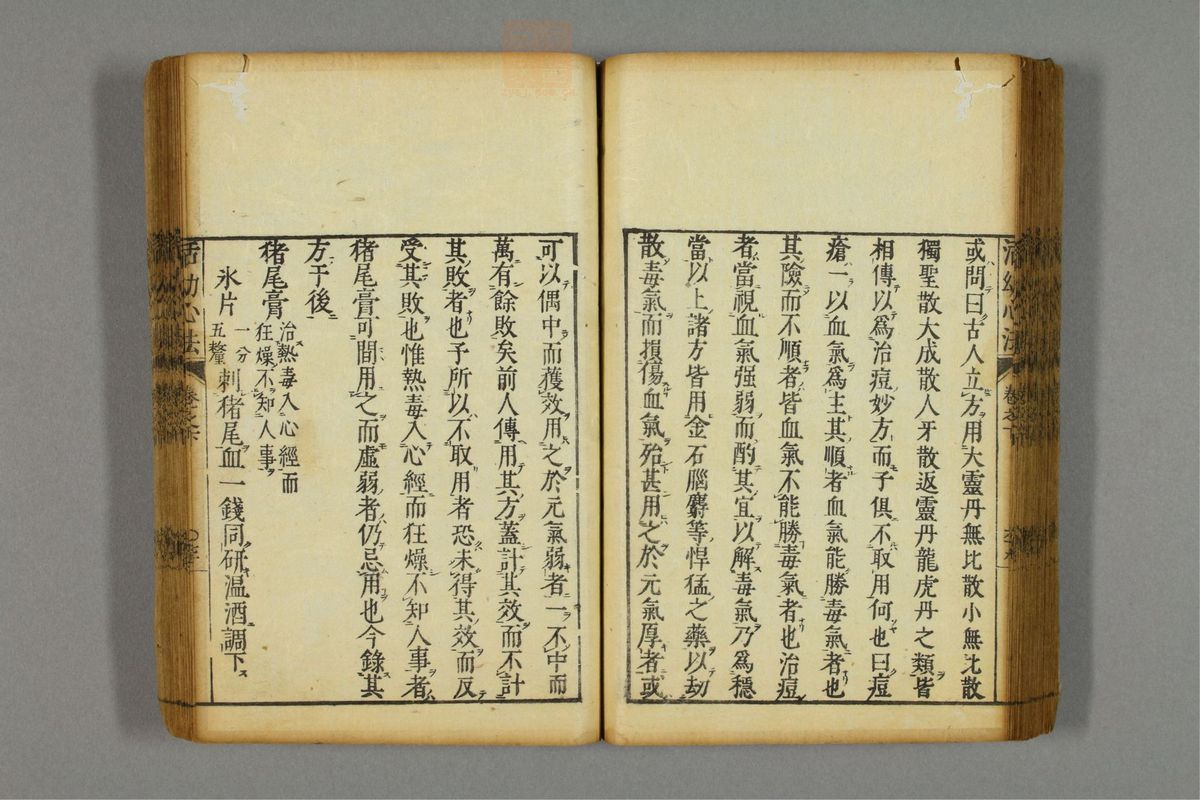 或問曰古人立方用大靈丹無比散小無比散
獨聖散大成散人牙散返靈丹龍虎丹之類皆
相傳以爲治痘妙方而子俱不取用何也曰痘
瘡一以血氣爲主其順者血氣能勝毒氣者也
其險而不順者皆血氣不能勝毒氣者也治痘
者當視血氣强弱而酌其宜以解毒氣乃爲穩
當以上諸方皆用金石腦麝等悍猛之藥以劫
散毒氣而損傷血氣殆甚用之於元氣厚者或
可以偶中而獲效用之於元氣弱者一不中而
萬有餘敗矣前人傳用其方蓋計其效而不計
其敗者也予所以不取用者恐未得其效而反
受其敗也惟熱毒入心經而狂燥不知人事者
猪尾膏可間用之而虛弱者仍忌用也今錄其
方于後
猪尾膏 治熱毒入心經而狂燥不知人事
氷片 一分五釐 刺猪尾血一錢同研温酒調下
活幼心法